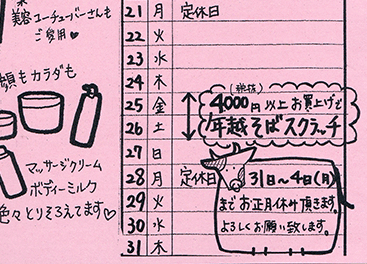 美容ユーチューバーさんも
ご愛用♡
顔もカラダも
マッサージクリーム
ボディーミルク
色々とりそろえてます♡
21 月 定休日
22 火
23 水
24 木
25 金
26 土
27 日
28 月 定休日
29 火
30 水
31 木
(税抜)
4000円以上お買上げで
年越そばスクラッチ
31日〜4日(月)
までお正月休み頂きます。
よろしくお願い致します。